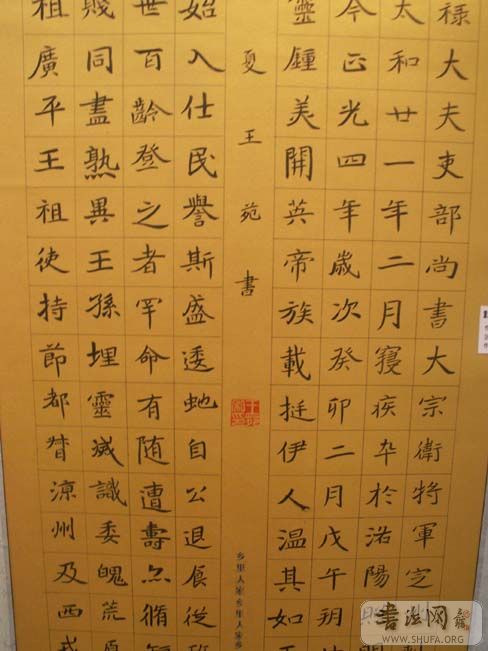 祿大夫吏部尚書大宗衛將軍定
太和廿一年二月寝疾卒於洛陽
今正光四年歲次癸卯二月戊午朔
靈鍾美開英帝族載挺伊人温其如
夏王苑書
乡里人家乡里人家乡
始入仕民譽斯盛逶虵自公退食從
世百齡登之者罕命有随遭壽亦脩短
賤同盡熟異王孫埋靈滅識委魄荒原
祖廣平王祖使持節都督涼州及西戎
書法网
WWW.SHUFA.ORG